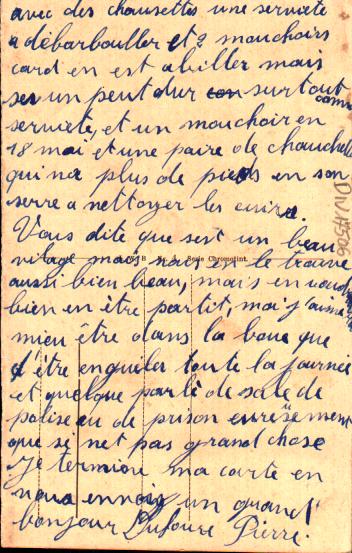 avec des chausettes une serviete
a débarbouller et 2 mouchoirs
card en est abiller mais
ses un peut dur con surtout comme
serviete, et un mouchoir en
18 mai et une paire de chauchette
qui na plus de pieds en son
serre a nettoyer les cuire.
Vous dite que sest un beau
vilage mais nous en le trouve
B Serie Chromotint
aussi bien beau, mais en voudr
bien en être partit, moi j'aime
mieu être dans la boue que
d'être engueler toute la journée
et quelque parlé de sale de
polise ou de prison eureusement
que si net pas grand chose
Je termine ma carte en
nous ennoie un grand
bonjour Dufoure Pierre.
DIVJ1506